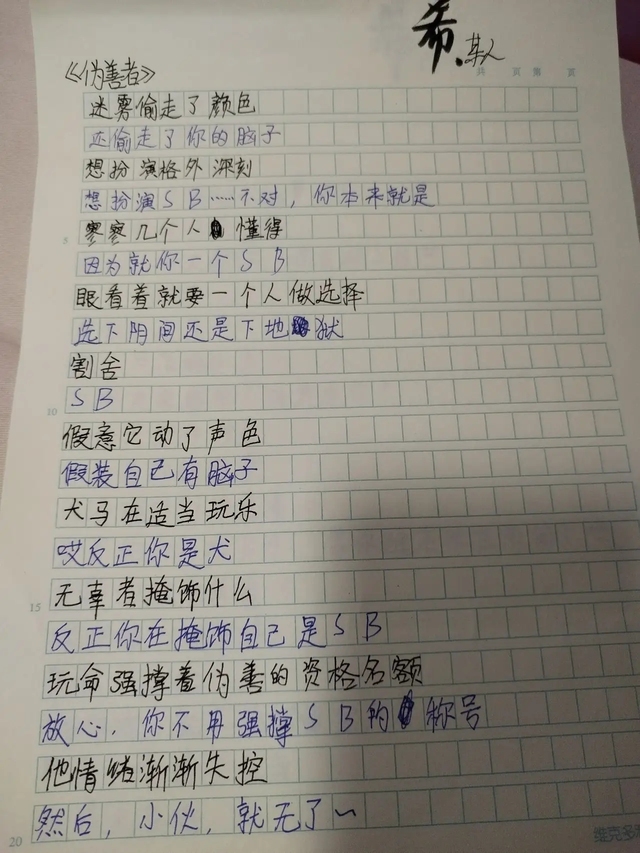 希.某人
共 页 第 页
《伪善者》
迷雾偷走了颜色
还偷走了你的脑子
想扮演格外深刻
想扮演SB……不对，你本来就是
5
寥寥几个人懂得
因为就你一个SB
眼看着就要一个人做选择
选下阴间还是下地狱
割舍
10
SB
假意它动了声色
假装自己有脑子
犬马在适当玩乐
哎反正你是犬
无辜者掩饰什么
15
反正你在掩饰自己是SB
玩命强撑着伪善的资格名额
放心，你不用强撑SB的称号
他情绪渐渐失控
然后，小伙，就无了~
20
维克多